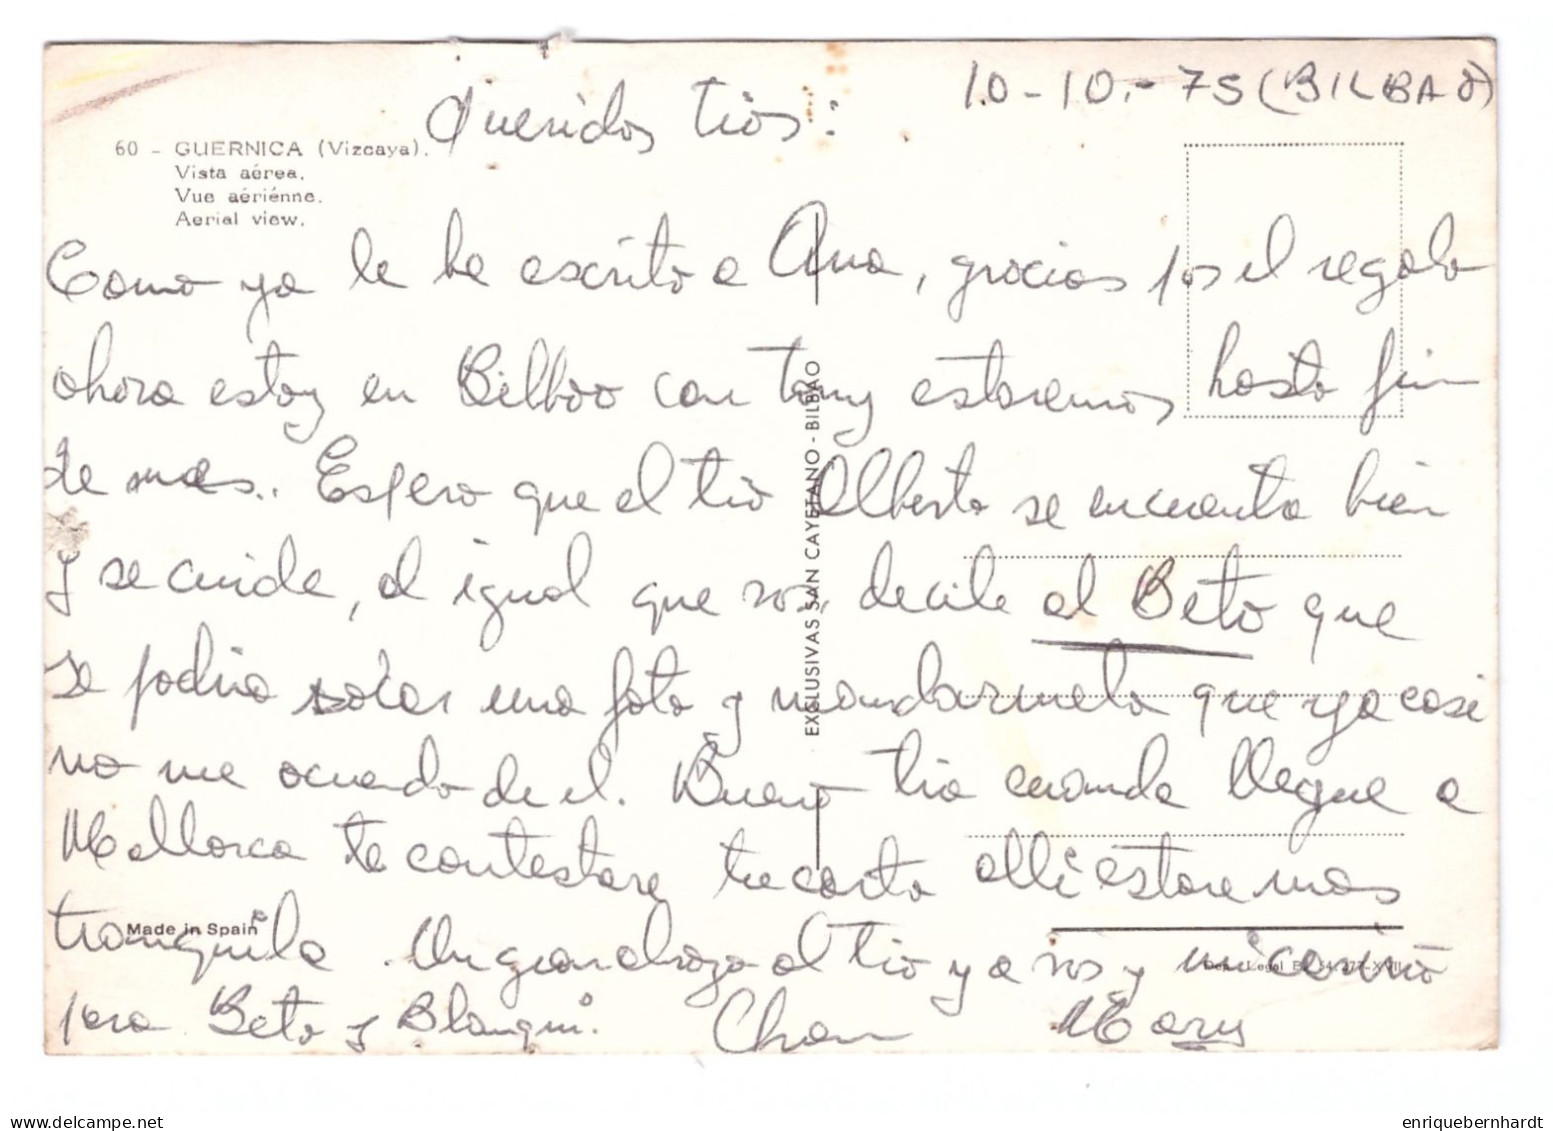 10-10.-75 (BILBAO)
Queridos tios:
60 - GUERNICA (Vizcaya).
Vista aérea.
Vue aériénne.
Aerial view.
Como ya le he escrito a Ana, gracias por el regalo
ahora estoy en Bilbao con Tony estaremos hasta fin
de mes.. Espero que el tio Alberto se encuentra bien
y se cuide, al igual que vos, decile al Beto que
se podria sacar una foto y mandarmela que ya casi
no me acuerdo de el. Bueno tia cuando llegue a
Mallorca te contestare tu carta alli estare mas
tranquila. Un gran abrazo al tio y a vos y mi cariño
para Beto y Blanqui. Chau Mary
EXCLUSIVAS SAN CAYETANO - BILBAO
Made in Spain
Dep. Legal B. 54.277-XVII
enriquebernhardt